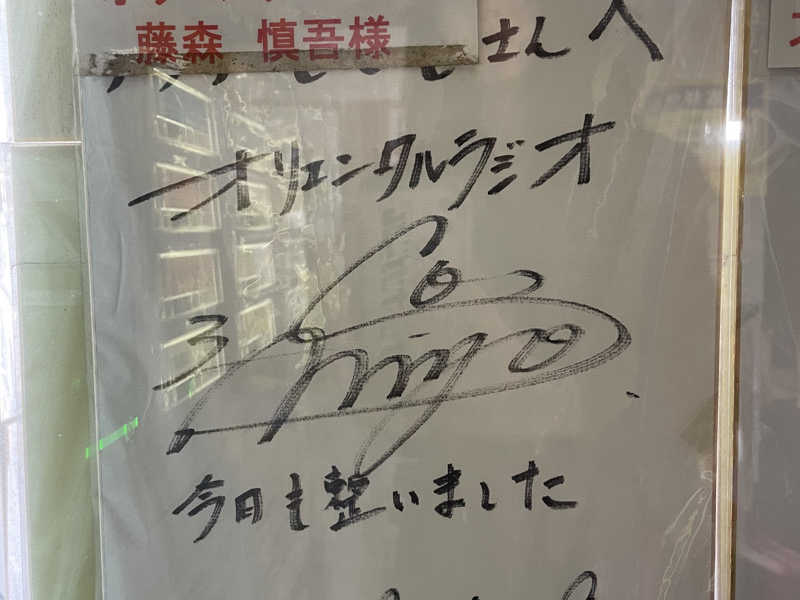 藤森 慎吾様
さんへ
オリエンタルラジオ
Shingo
今日も整いました